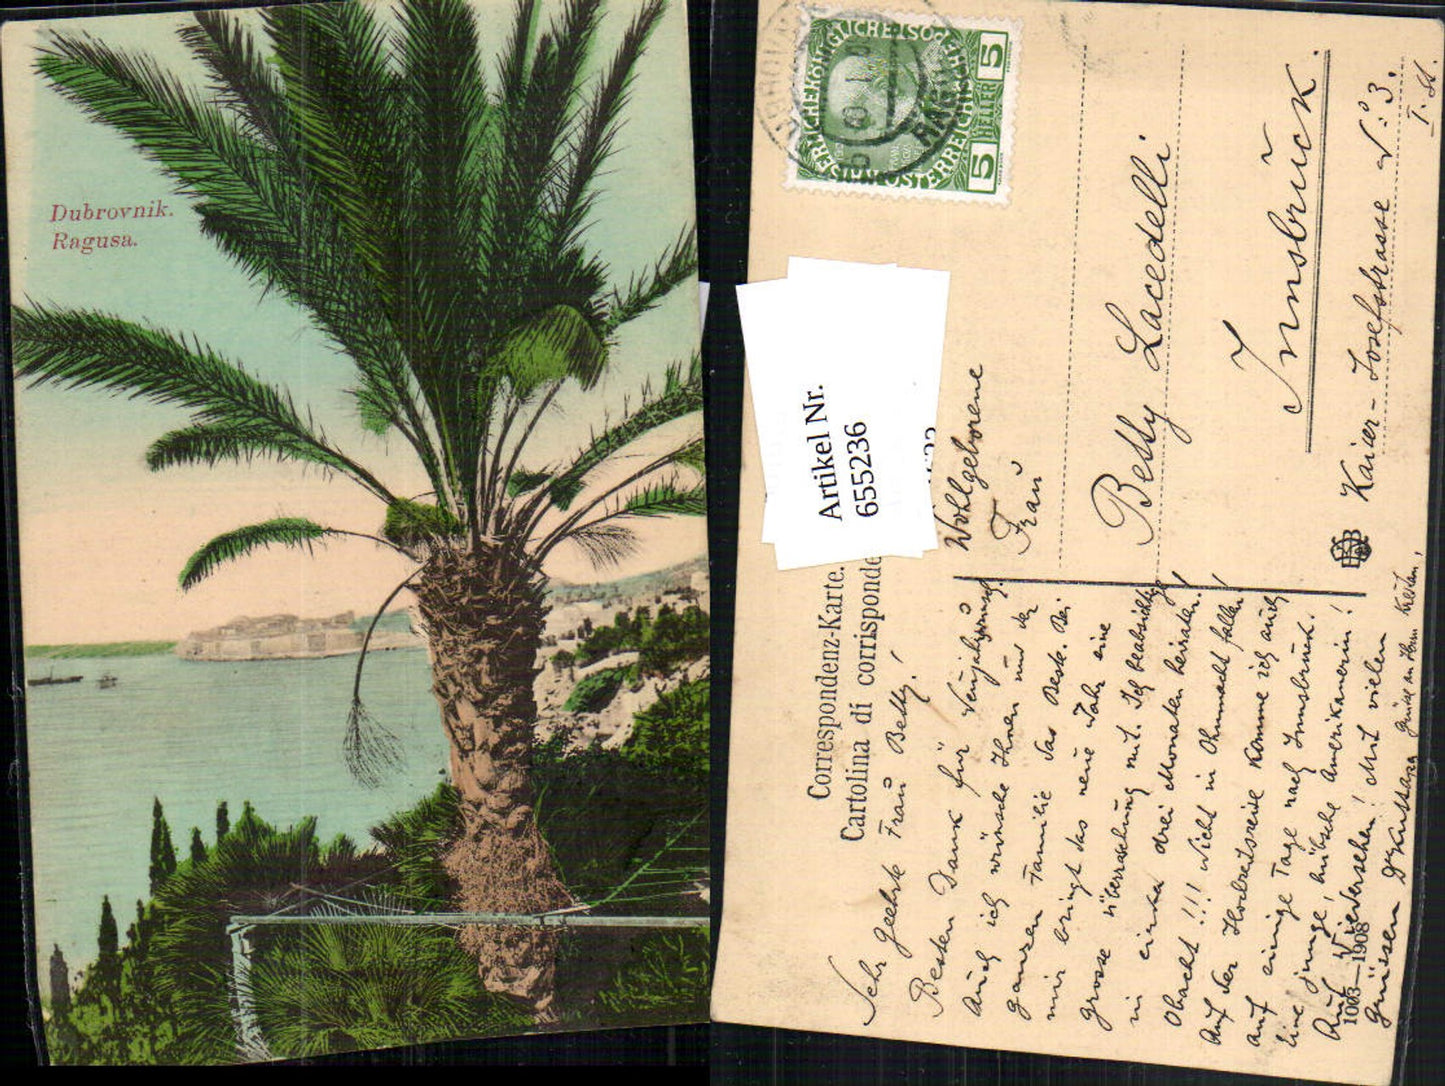 Dubrovnik.
Ragusa.
KAISERLICHE KÖNIGLICHE ÖSTERREICHISCHE POST
5 HELLER 5
DUBROVNIK
RAGUSA
Artikel Nr.
655236
Correspondenz-Karte.
Cartolina di corrisponde
Wohlgeborene
Frau
Betty Lacedelli
Innsbruck.
Kaiser-Josefstrasse No 3.
I. St.
Sehr geehrte Frau Betty!
Besten Dank für Neujahrwunsch!
Auch ich wünsche Ihnen und der
ganzen Familie das Beste. Bei
mir bringt das neue Jahr eine
grosse Überraschung mit. Ich beabsichtige
in cirka drei Monaten heiraten!
Obacht!!! Nicht in Ohnmacht fallen!
Auf der Hochzeitsreise komme ich auch
auf einige Tage nach Innsbruck.
Eine junge, hübsche Amerikanerin!
Auf Wiedersehen! Mit vielen
Grüssen
1003—1908